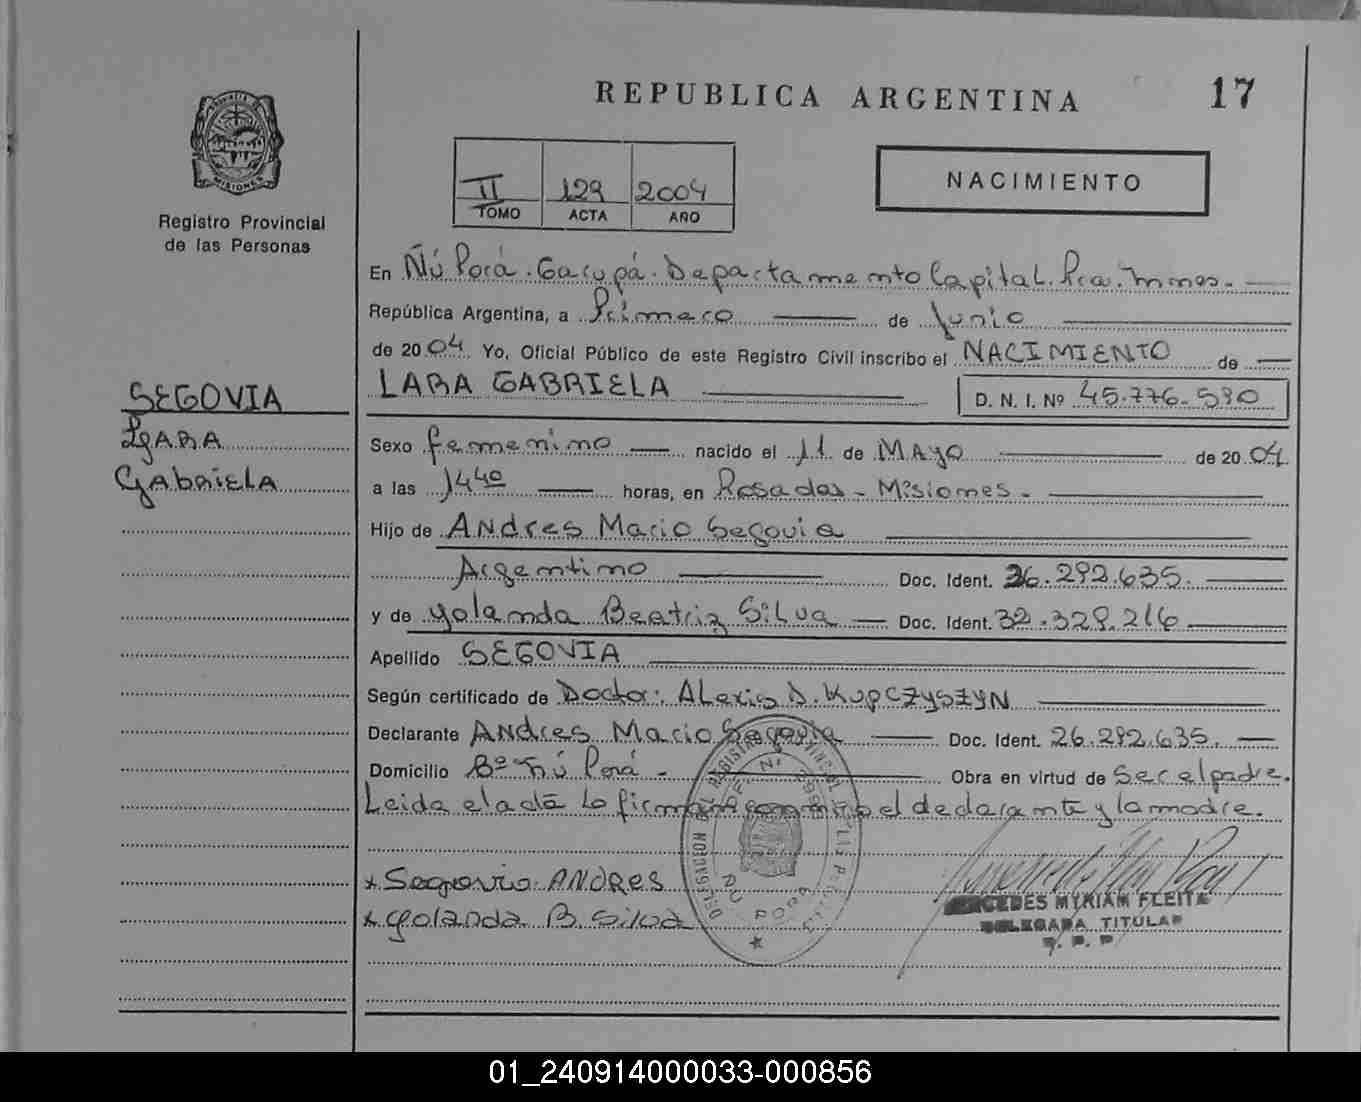 REPUBLICA ARGENTINA 17
PROVINCIA DE
MISIONES
Registro Provincial
de las Personas
II 129 2004
TOMO ACTA AÑO
NACIMIENTO
En Ñú Porá. Garupá. Departamento Capital. Pcia. Mnes.
República Argentina, a Primero de Junio
de 2004 Yo, Oficial Público de este Registro Civil inscribo el NACIMIENTO de
LARA GABRIELA
D. N. I. Nº 45.776.590
SEGOVIA
LARA
GabRiELA
Sexo femenino nacido el 11 de MAyo de 2004
a las 14 40 horas, en Posadas - Misiones -
Hijo de ANdres Mario Segovia
Argentino Doc. Ident. 26.292.635.
y de yolanda Beatriz Silva Doc. Ident. 32.329.216
Apellido SEGOVIA
Según certificado de Doctor: ALexis D. KUPCZYSZYN
Declarante ANdres Mario Segovia Doc. Ident. 26.292.635.
Domicilio Bº Ñú Porá - Obra en virtud de Ser el padre.
Leida el acta la firman conmigo el declarante y la madre.
x Segovia ANDRES
x yolanda B. Silva
DELEGACION REGISTRO PROVINCIAL
ÑU PORA
MERCEDES MYRIAM FLEITA
DELEGADA TITULAR
R. P. P
01_240914000033-000856